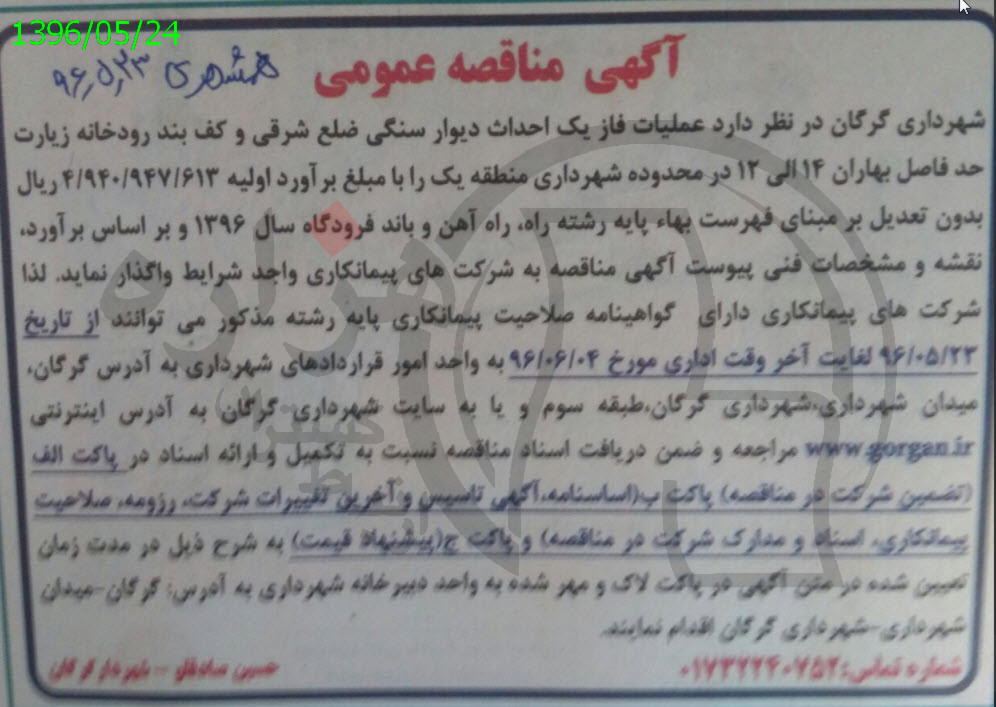 1396/05/24
همشهری ۹۶٫۵٫۲۳
آگهی مناقصه عمومی
شهرداری گرگان در نظر دارد عملیات فاز یک احداث دیوار سنگی ضلع شرقی و کف بند رودخانه زیارت
حد فاصل بهاران ۱۴ الی ۱۲ در محدوده شهرداری منطقه یک را با مبلغ برآورد اولیه ۴/۹۴۰/۹۴۷/۶۱۳ ریال
بدون تعدیل بر مبنای فهرست بهاء پایه رشته راه، راه آهن و باند فرودگاه سال ۱۳۹۶ و بر اساس برآورد،
نقشه و مشخصات فنی پیوست آگهی مناقصه به شرکت های پیمانکاری واجد شرایط واگذار نماید. لذا
شرکت های پیمانکاری دارای گواهینامه صلاحیت پیمانکاری پایه رشته مذکور می توانند از تاریخ
۹۶/۰۵/۲۳ لغایت آخر وقت اداری مورخ ۹۶/۰۶/۰۴ به واحد امور قراردادهای شهرداری به آدرس گرگان،
میدان شهرداری،شهرداری گرگان،طبقه سوم و یا به سایت شهرداری گرگان به آدرس اینترنتی
www.gorgan.ir مراجعه و ضمن دریافت اسناد مناقصه نسبت به تکمیل و ارائه اسناد در پاکت الف
(تضمین شرکت در مناقصه) پاکت ب(اساسنامه،آگهی تاسیس و آخرین تغییرات شرکت، رزومه، صلاحیت
پیمانکاری، اسناد و مدارک شرکت در مناقصه) و پاکت ج(پیشنهاد قیمت) به شرح ذیل در مدت زمان
تعیین شده در متن آگهی در پاکت لاک و مهر شده به واحد دبیرخانه شهرداری به آدرس: گرگان-میدان
شهرداری-شهرداری گرگان اقدام نمایند.
شماره تماس:۰۱۷۳۲۲۴۰۷۵۲
حسین صادقلو - شهردار گرگان
هزاره